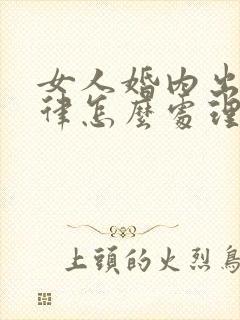 女人婚内出
律怎麼處理
上頭的火烈鳥